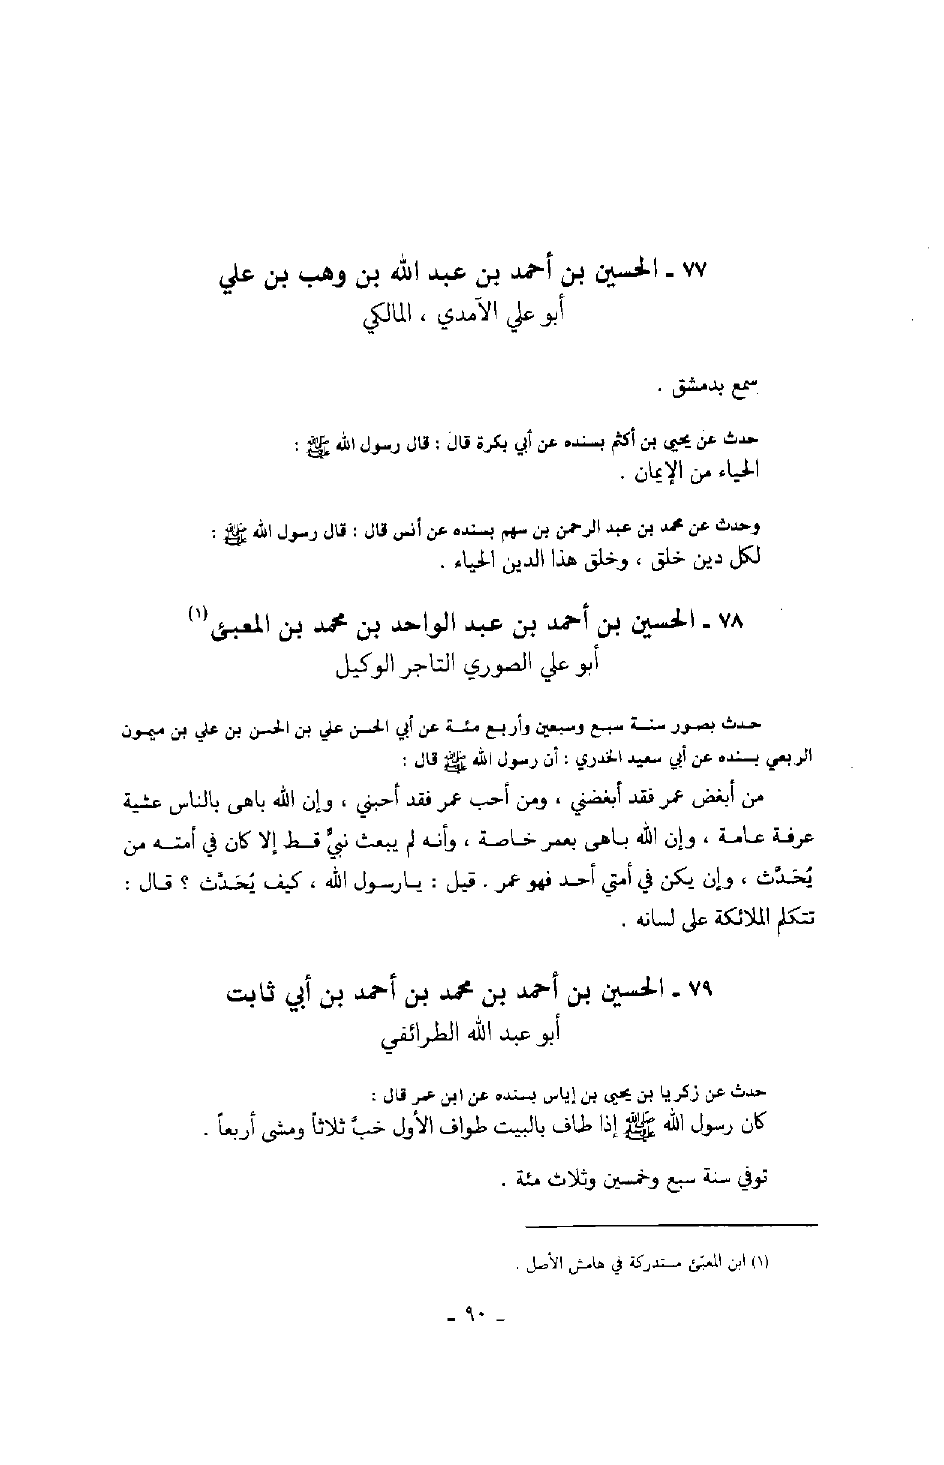 ٧٧ ـ الحسين بن أحمد بن عبد الله بن وهب بن علي
أبو علي الآمدي ، المالكي
سمع بدمشق .
حدث عن يحيى بن أكثم بسنده عن أبي بكرة قال : قال رسول الله ﷺ :
الحياء من الإيمان .
وحدث عن محمد بن عبد الرحمن بن سهم بسنده عن أنس قال : قال رسول الله ﷺ :
لكل دين خلق ، وخلق هذا الدين الحياء .
٧٨ ـ الحسين بن أحمد بن عبد الواحد بن محمد بن المعبئ(١)
أبو علي الصوري التاجر الوكيل
حدث بصور سنة سبع وسبعين وأربع مئة عن أبي الحسن علي بن الحسن بن علي بن ميمون
الربعي بسنده عن أبي سعيد الخدري : أن رسول الله ﷺ قال :
من أبغض عمر فقد أبغضني ، ومن أحب عمر فقد أحبني ، وإن الله باهى بالناس عشية
عرفة عامة ، وإن الله باهى بعمر خاصة ، وأنه لم يبعث نبيٌّ قط إلا كان في أمته من
يُحَدَّث ، وإن يكن في أمتي أحد فهو عمر . قيل : يارسول الله ، كيف يُحَدَّث ؟ قال :
تتكلم الملائكة على لسانه .
٧٩ ـ الحسين بن أحمد بن محمد بن أحمد بن أبي ثابت
أبو عبد الله الطرائفي
حدث عن زكريا بن يحيى بن إياس بسنده عن ابن عمر قال :
كان رسول الله ﷺ إذا طاف بالبيت طواف الأول خبَّ ثلاثاً ومشى أربعاً .
توفي سنة سبع وخمسين وثلاث مئة .
(١) ابن المعبّئ مستدركة في هامش الأصل .
ـ ٩٠ ـ